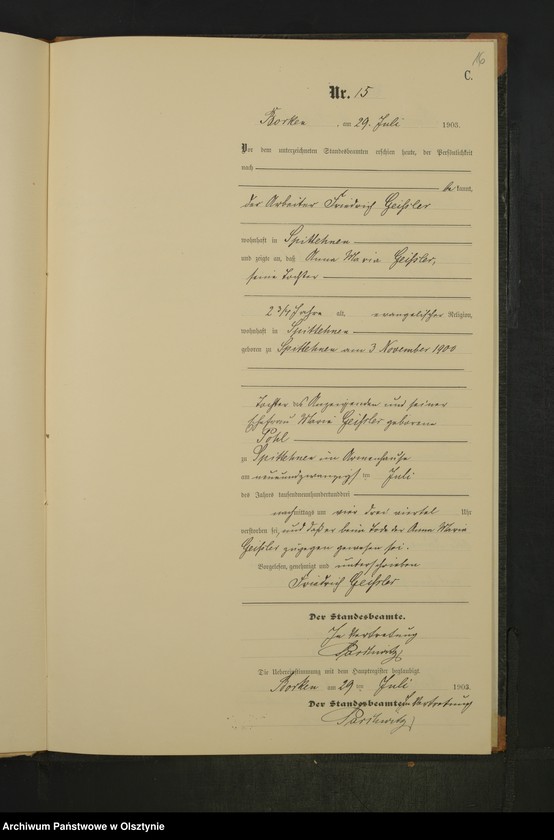 16
C.
Nr. 15
Borken, am 29. Juli 1903.
Vor dem unterzeichneten Standesbeamten erschien heute, der Persönlichkeit
nach
bekannt,
der Arbeiter Friedrich Geissler
wohnhaft in Spittehnen
und zeigte an, daß Anna Maria Geissler,
seine Tochter
2 3/4 Jahre alt, evangelischer Religion,
wohnhaft in Spittehnen
geboren zu Spittehnen am 3 November 1900
Tochter des Anzeigenden und seiner
Ehefrau Maria Geissler geborene
Pohl
zu Spittehnen im Armenhause
am neunundzwanzigsten Juli
des Jahres tausendneunhundertunddrei
nachmittags um vier drei viertel Uhr
verstorben sei, und daß er beim Tode der Anna Maria
Geissler zugegen gewesen sei.
Vorgelesen, genehmigt und unterschrieben
Friedrich Geissler
Der Standesbeamte.
In Vertretung
Die Uebereinstimmung mit dem Hauptregister beglaubigt
Borken am 29ten Juli 1903
Der Standesbeamte In Vertretung
Archiwum Państwowe w Olsztynie